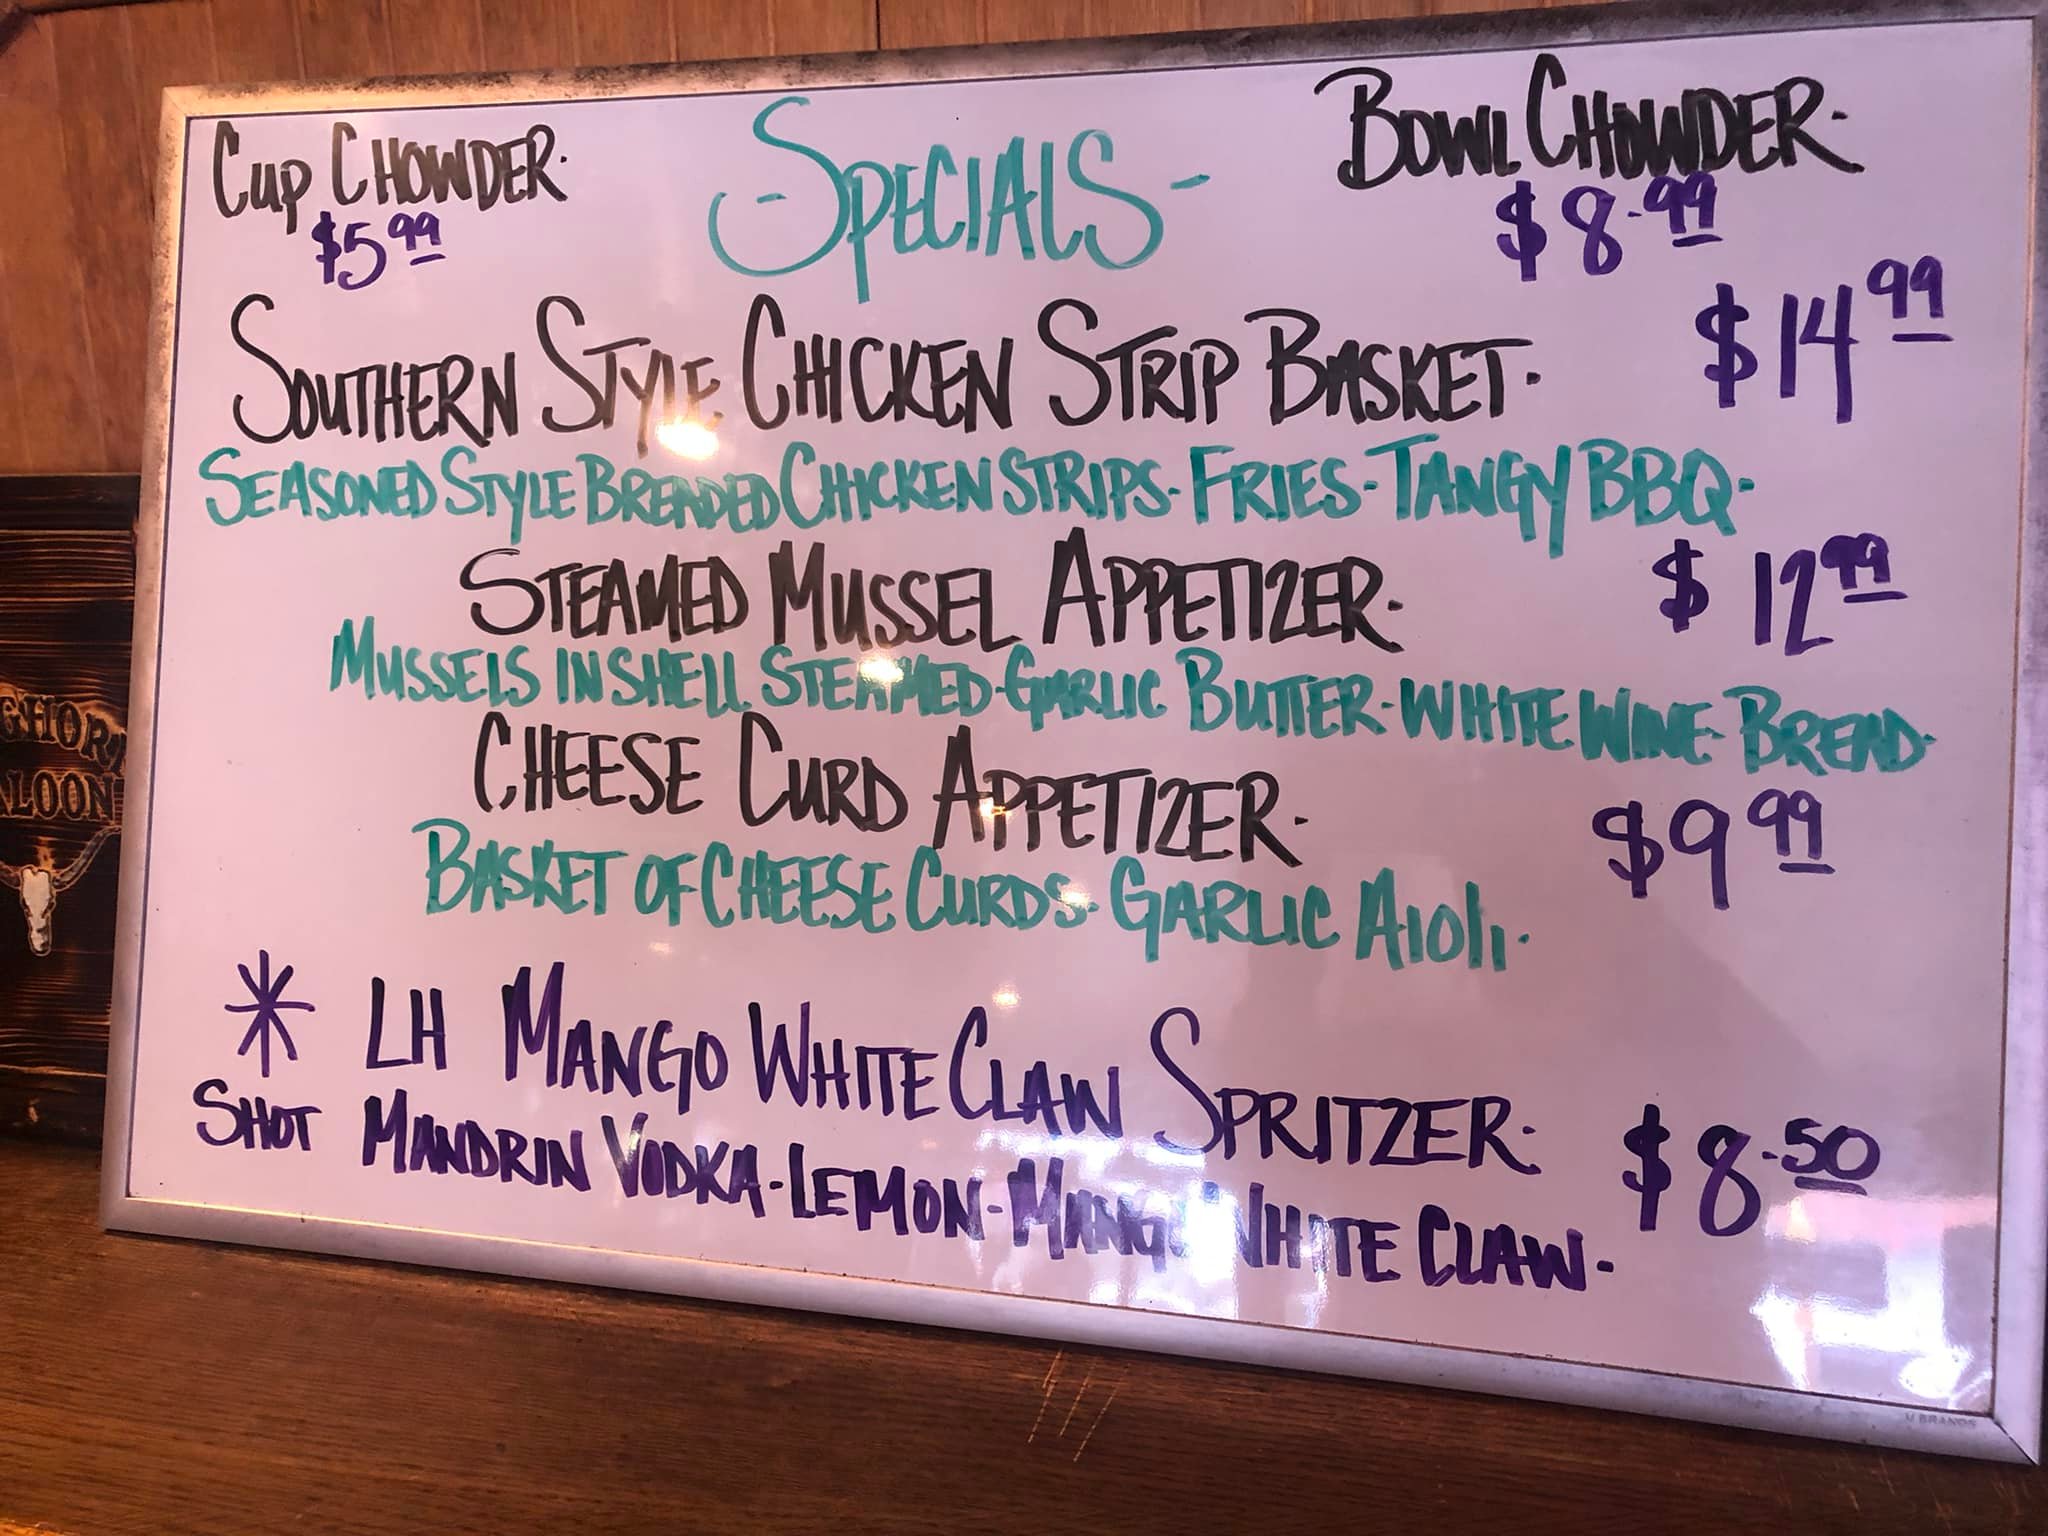 Cup Chowder.
$5.99
-Specials-
Bowl Chowder.
$8.99
Southern Style Chicken Strip Basket. $14.99
Seasoned Style Breaded Chicken Strips. Fries. Tangy BBQ.
Steamed Mussel Appetizer. $12.99
Mussels in Shell Steamed. Garlic Butter. White Wine Bread.
Cheese Curd Appetizer. $9.99
Basket of Cheese Curds. Garlic Aioli.
* LH Mango White Claw Spritzer. $8.50
Shot Mandrin Vodka. Lemon. Mango White Claw.
GHORN
ALOON
U BRANDS